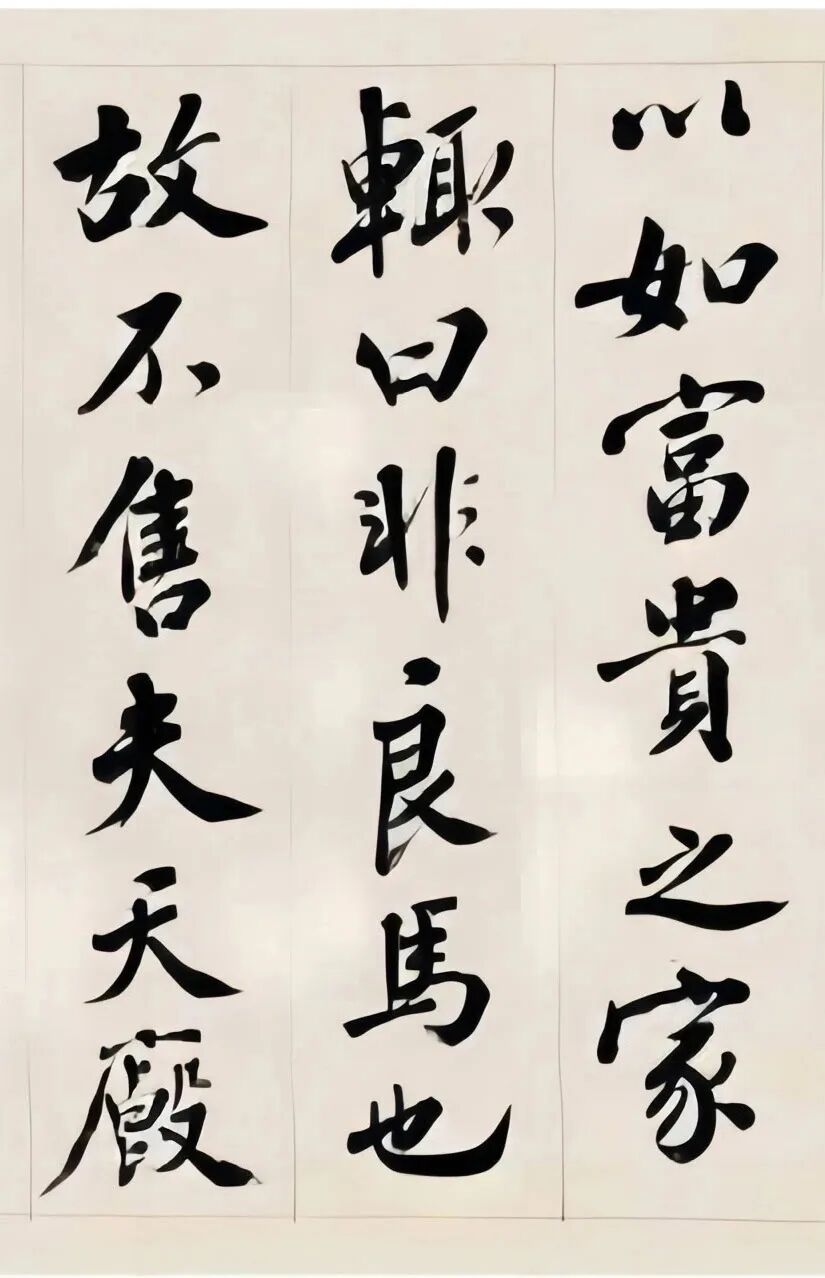 以如富貴之家
輙曰非良馬也
故不售夫天廄